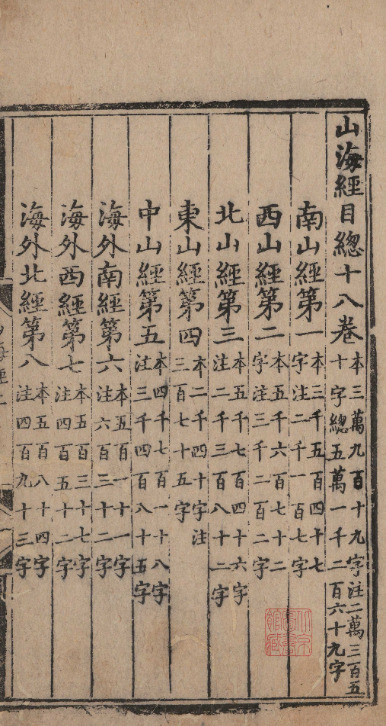 山海經目總十八卷 本三萬九百十九字注二萬三百五十字總五萬一千二百六十九字
南山經第一 本三千五百四十七字注二千一百七字
西山經第二 本五千六百七十二字注三千二百二字
北山經第三 本五千七百四十六字注二千三百八十二字
東山經第四 本二千四十字注三百七十五字
中山經第五 本四千七百一十八字注三千四百八十五字
海外南經第六 本五百一十一字注六百三十二字
海外西經第七 本五百三十七字注四百五十二字
海外北經第八 本五百八十四字注四百九十三字